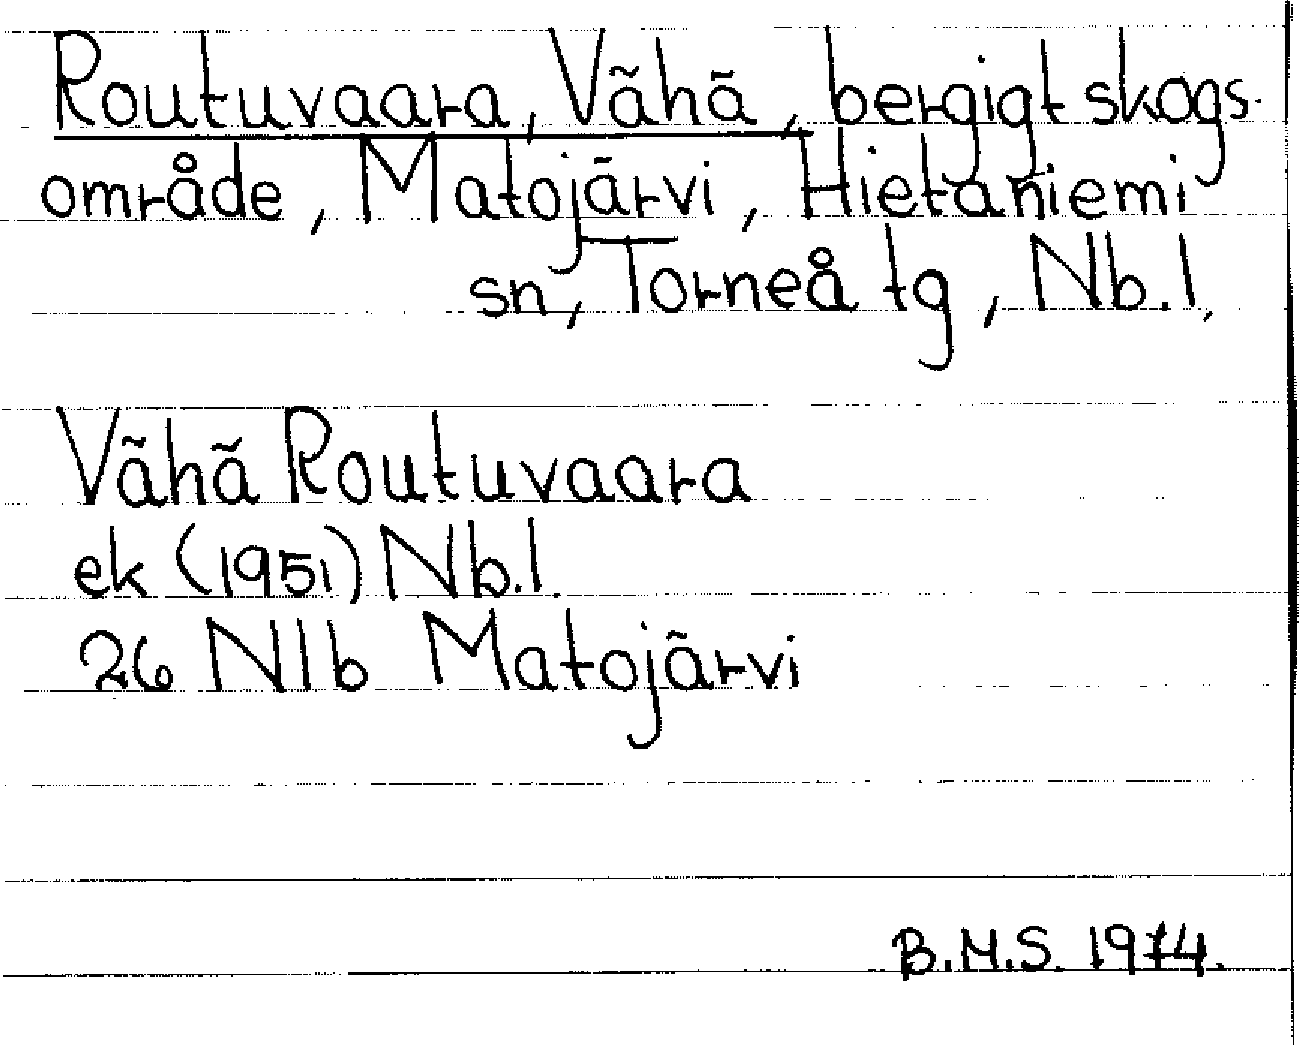 Routuvaara, Vähä, bergigt skogs-
område, Matojärvi, Hietaniemi
sn, Torneå tg, Nb.l,
Vähä Routuvaara
ek (1951) Nb.l.
26 Nlb Matojärvi
B.M.S. 1974.